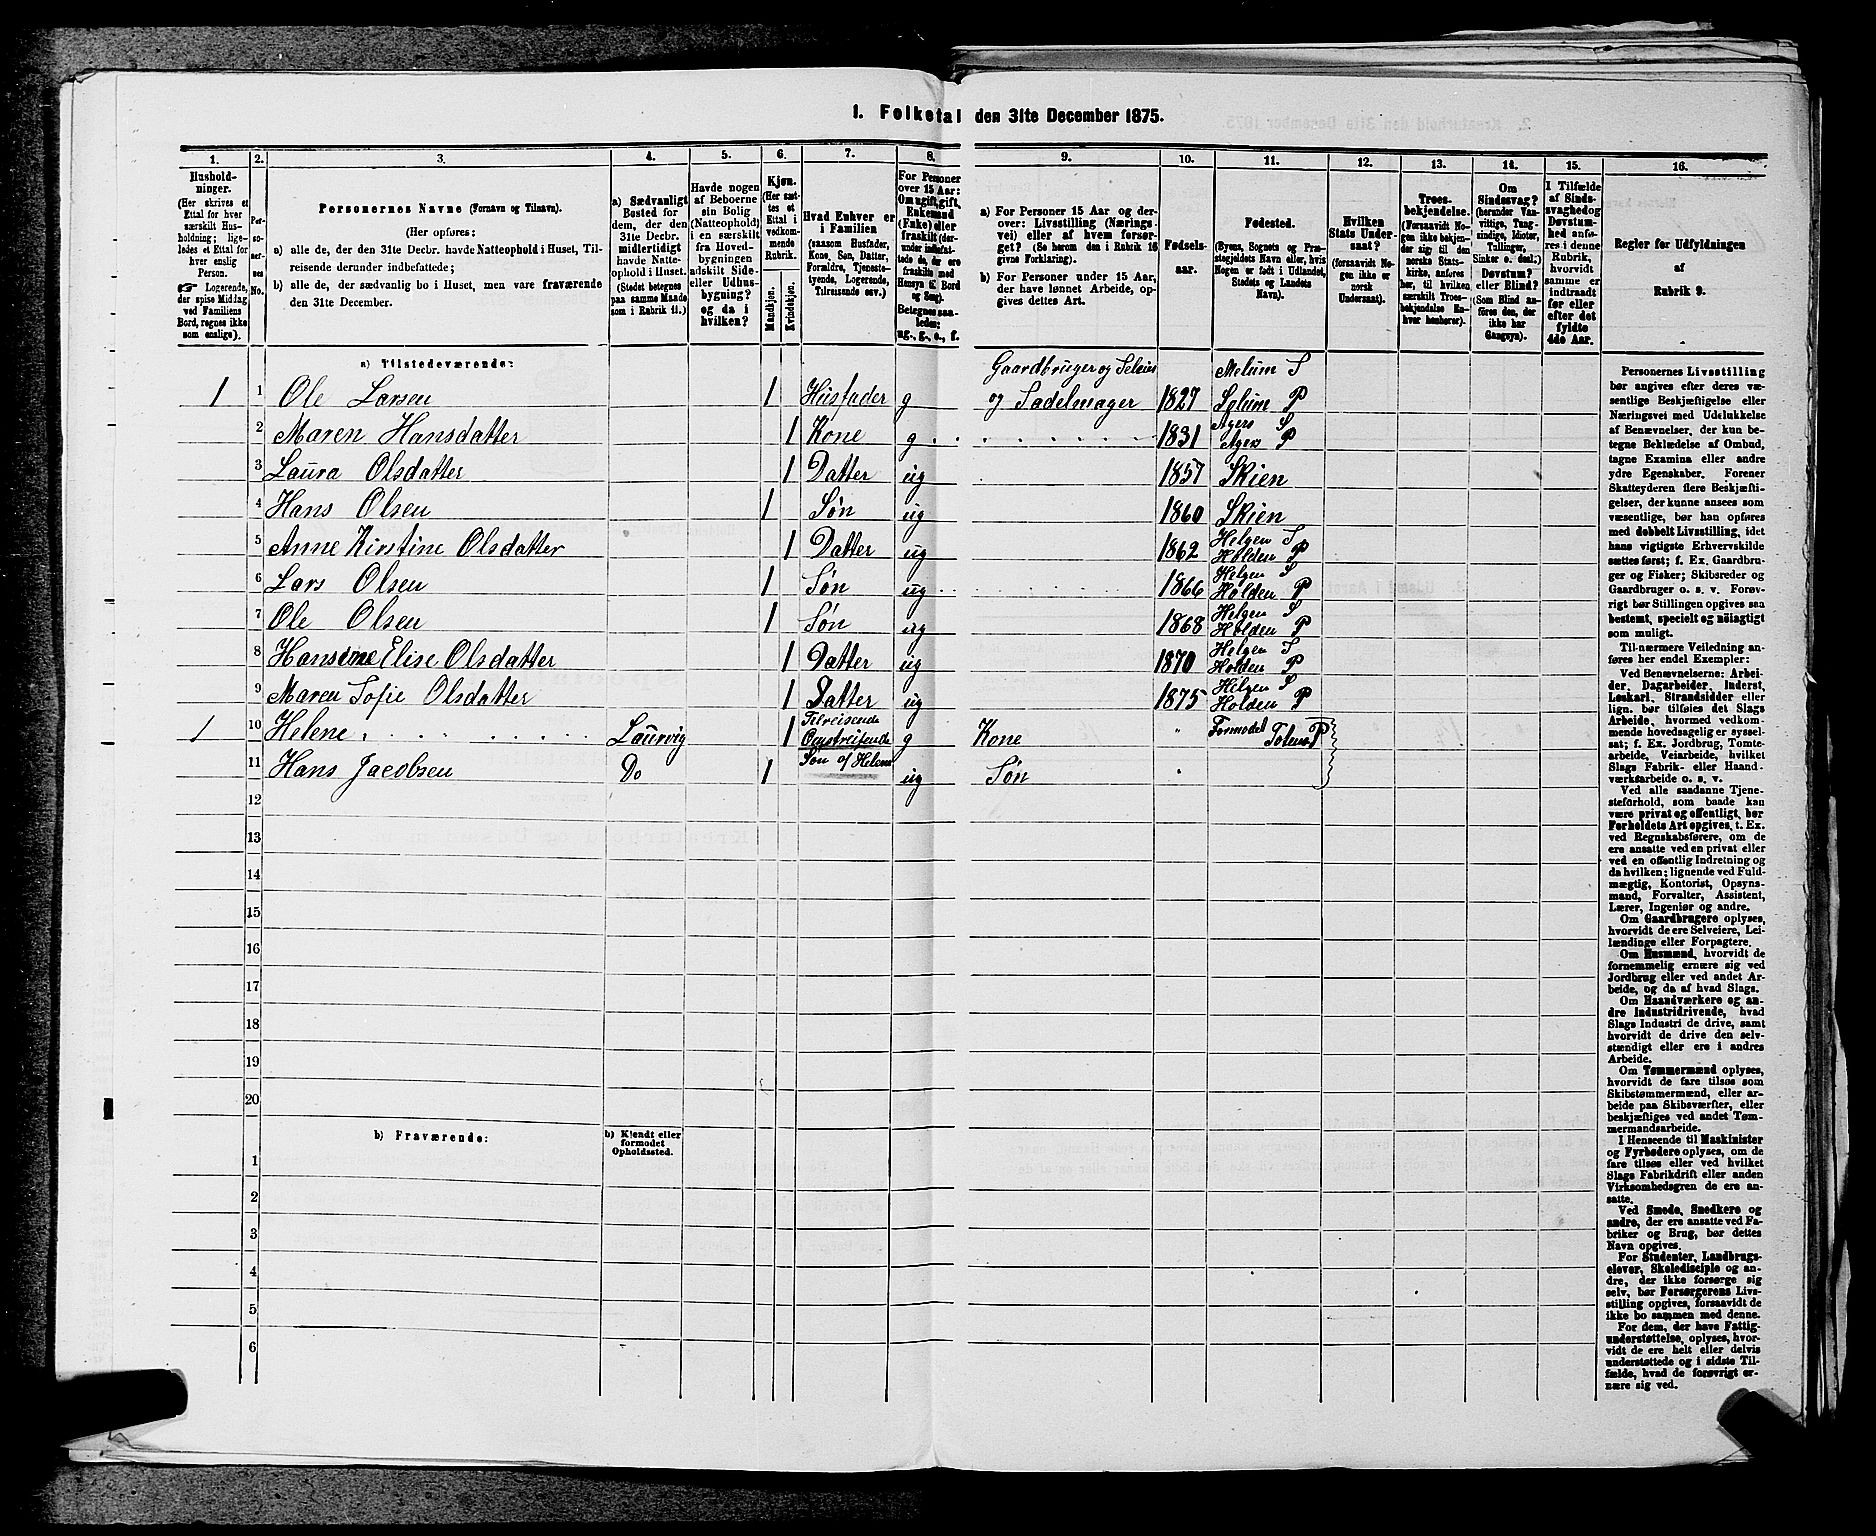 1. Folketal den 31te December 1875.
1. 2. 3. 4. 5. 6. 7. 8. 9. 10. 11. 12. 13. 14. 15. 16.
Husholdninger.
(Her skrives et
Ettal for hver
særskilt Hus-
holdning; lige-
ledes et Ettal for
hver enslig
Person.
☞ Logerende,
der spise Middag
ved Familiens
Bord, regnes ikke
som enslige).
Per-
so-
ner-
nes
No.
Personernes Navne (Fornavn og Tilnavn).
(Her opføres:
a) alle de, der den 31te Decbr. havde Natteophold i Huset, Til-
reisende derunder indbefattede;
b) alle de, der sædvanlig bo i Huset, men vare fraværende
den 31te December.
a) Sædvanligt
Bosted for
dem, der den
31te Decbr.
midlertidigt
havde Natte-
ophold i Huset.
(Stedet betegnes
paa samme Maade
som i Rubrik 11.)
Havde nogen
af Beboerne
sin Bolig
(Natteophold)
i en særskilt
fra Hoved-
bygningen
adskilt Side-
eller Udhus-
bygning?
og da i
hvilken?
Kjøn.
(Her sæt-
tes et
Ettal i
vedkom-
mende
Rubrik.
Mandkjøn.
Kvindekjøn.
Hvad Enhver er
i Familien
(saasom Husfader,
Kone, Søn, Datter,
Forældre, Tjeneste-
tyende, Logerende,
Tilreisende osv.)
For Personer
over 15 Aar:
Om ugift, gift,
Enkemand
(Enke) eller
fraskilt (der-
under indbefat-
tede de, der ere
fraskilte med
Hensyn til Bord
og Seng).
Betegnes saa-
ledes:
ug., g., e., f.
a) For Personer 15 Aar og der-
over: Livsstilling (Nærings-
vei) eller af hvem forsør-
get? (Se herom den i Rubrik 16
givne Forklaring).
b) For Personer under 15 Aar,
der have lønnet Arbeide, op-
gives dettes Art.
Fødsels-
aar.
Fødested.
(Byens, Sognets og Præ-
stegjeldets Navn eller, hvis
Nogen er født i Udlandet,
Stedets og Landets
Navn).
Hvilken
Stats Under-
saat?
(forsaavidt No-
gen ikke er
norsk
Undersaat).
Troes-
bekjendelse.
(Forsaavidt No-
gen ikke bekjen-
der sig til den
norske Stats-
kirke, anføres
her, til hvilken
særskilt Troes-
bekjendelse En-
hver henhører).
Om
Sindssvag?
(herunder Van-
vittige, Tung-
sindige, Idioter,
Tullinger,
Sinker o. desl.)
Døvstum?
eller Blind?
(Som Blind an-
føres den, der
ikke har
Gangsyn).
I Tilfælde
af Sinds-
svaghed og
Døvstum-
hed anfø-
res i denne
Rubrik,
hvorvidt
samme er
indtraadt
før eller
efter det
fyldte
4de Aar.
Regler for Udfyldningen
af
Rubrik 9.
a) Tilstedeværende:
Gaardbruger og Seleier Melum S
1 1 Ole Larsen 1 Husfader g og Sadelmager 1827 Solum P
Agers S
2 Maren Hansdatter 1 Kone g 1831 Agers P
3 Laura Olsdatter 1 Datter ug 1857 Skien
4 Hans Olsen 1 Søn ug 1860 Skien
Helgen S
5 Anne Kirstine Olsdatter 1 Datter ug 1862 Holden P
Helgen S
6 Lars Olsen 1 Søn ug 1866 Holden P
Helgen S
7 Ole Olsen 1 Søn ug 1868 Holden P
Helgen S
8 Hansine Elise Olsdatter 1 Datter ug 1870 Holden P
Helgen S
9 Maren Sofie Olsdatter 1 Datter ug 1875 Holden P
Tilreisende
1 10 Helene Laurvig 1 Omstreifende g Kone " Formodet Toten P
11 Hans Jacobsen Do 1 Søn af Helene ug Søn "
12
13
14
15
16
17
18
19
20
b) Fraværende:
b) Kjendt eller
formodet
Opholdssted.
1
2
3
4
5
6
Personernes Livsstilling
bør angives efter deres væ-
sentlige Beskjæftigelse eller
Næringsvei med Udelukkelse
af Benævnelser, der kun be-
tegne Beklædelse af Ombud,
tagne Examina eller andre
ydre Egenskaber. Forener
Skatteyderen flere Beskjæfti-
gelser, der kunne ansees som
væsentlige, bør han opføres
med dobbelt Livsstilling, idet
hans vigtigste Erhvervskilde
sættes først; f. Ex. Gaardbru-
ger og Fisker; Skibsreder og
Gaardbruger o. s. v. Forøv-
rigt bør Stillingen opgives saa
bestemt, specielt og nøiagtigt
som muligt.
Til nærmere Veiledning an-
føres her endel Exempler:
Ved Benævnelserne: Arbei-
der, Dagarbeider, Inderst,
Løskarl, Strandsidder eller
lign. bør tilføies det Slags
Arbeide, hvormed vedkom-
mende hovedsagelig er syssel-
sat; f. Ex. Jordbrug, Tomte-
arbeide, Veiarbeide, hvilket
Slags Fabrik- eller Haand-
værksarbeide o. s. v.
Ved alle saadanne Tjene-
steforhold, som baade kan
være privat og offentligt, bør
Forholdets Art opgives, t. Ex.
ved Regnskabsførere, om de
ere ansatte ved en privat eller
ved en offentlig Indretning og
da hvilken; lignende ved Fuld-
mægtig, Kontorist, Opsyns-
mand, Forvalter, Assistent,
Lærer, Ingeniør og andre.
Om Gaardbrugere oplyses,
hvorvidt de ere Selveiere, Lei-
lændinge eller Forpagtere.
Om Husmænd, hvorvidt de
fornemmelig ernære sig ved
Jordbrug eller ved andet Ar-
beide, og da af hvad Slags.
Om Haandværkere og an-
dre Industridrivende, hvad
Slags Industri de drive, samt
hvorvidt de drive den selv-
stændigt eller ere i andres
Arbeide.
Om Tømmermænd oplyses,
hvorvidt de fare tilsøs som
Skibstømmermænd, eller ar-
beide paa Skibsværfter, eller
beskjæftiges ved andet Tøm-
mermandsarbeide.
I Henseende til Maskinister
og Fyrbødere oplyses, om de
fare tilsøs eller ved hvilket
Slags Fabrikdrift eller anden
Virksomhedsgren de ere an-
satte.
Ved Smede, Snedkere og
andre, der ere ansatte ved Fa-
briker og Brug, bør dettes
Navn opgives.
For Studenter, Landbrugs-
elever, Skoledisciple og an-
dre, der ikke forsørge sig
selv, bør Forsørgerens Livs-
stilling opgives, forsaavidt de
ikke bo sammen med denne.
For dem, der have Fattig-
understøttelse, oplyses, hvor-
vidt de ere helt eller delvis
understøttede og i sidste Til-
fælde, hvad de forøvrigt er-
nære sig ved.